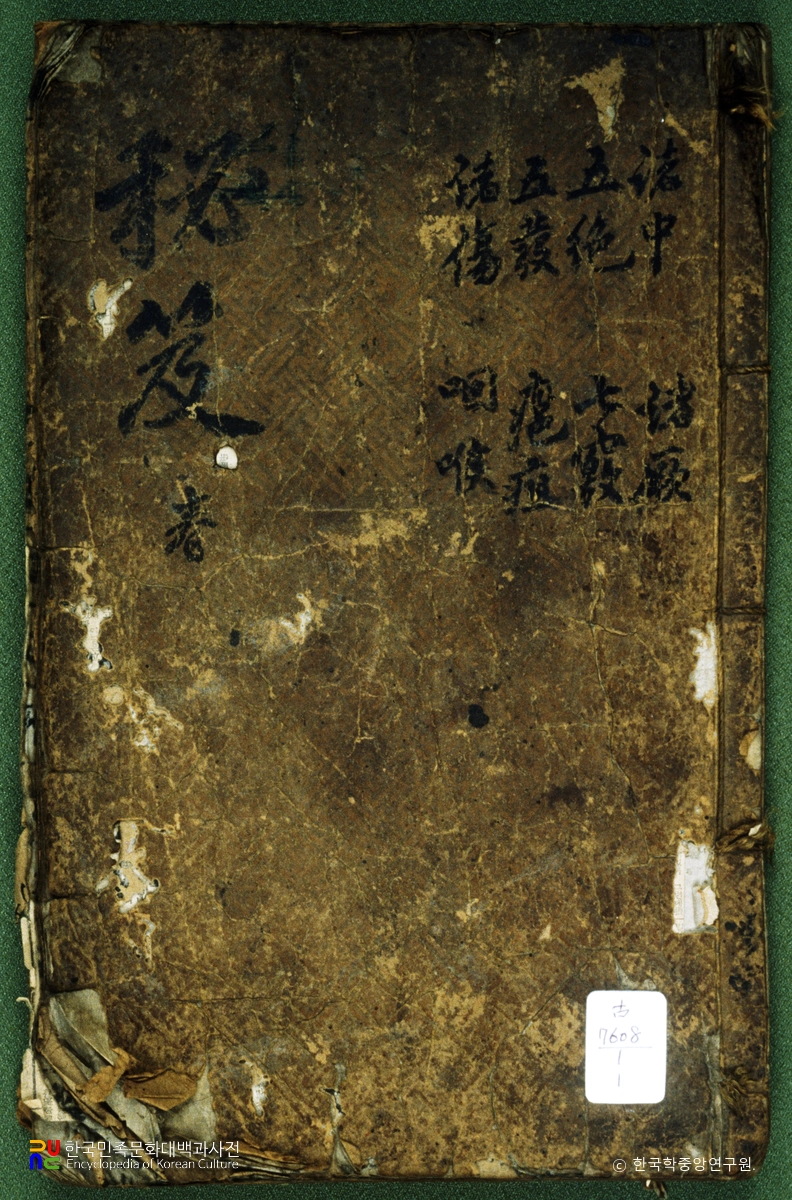 諸中 諸厥
五絶 七竅
五發 瘡疽
諸傷 咽喉
秘笈 春
古
7608
1
1
한국민족문화대백과사전
Encyclopedia of Korean Culture
© 한국학중앙연구원